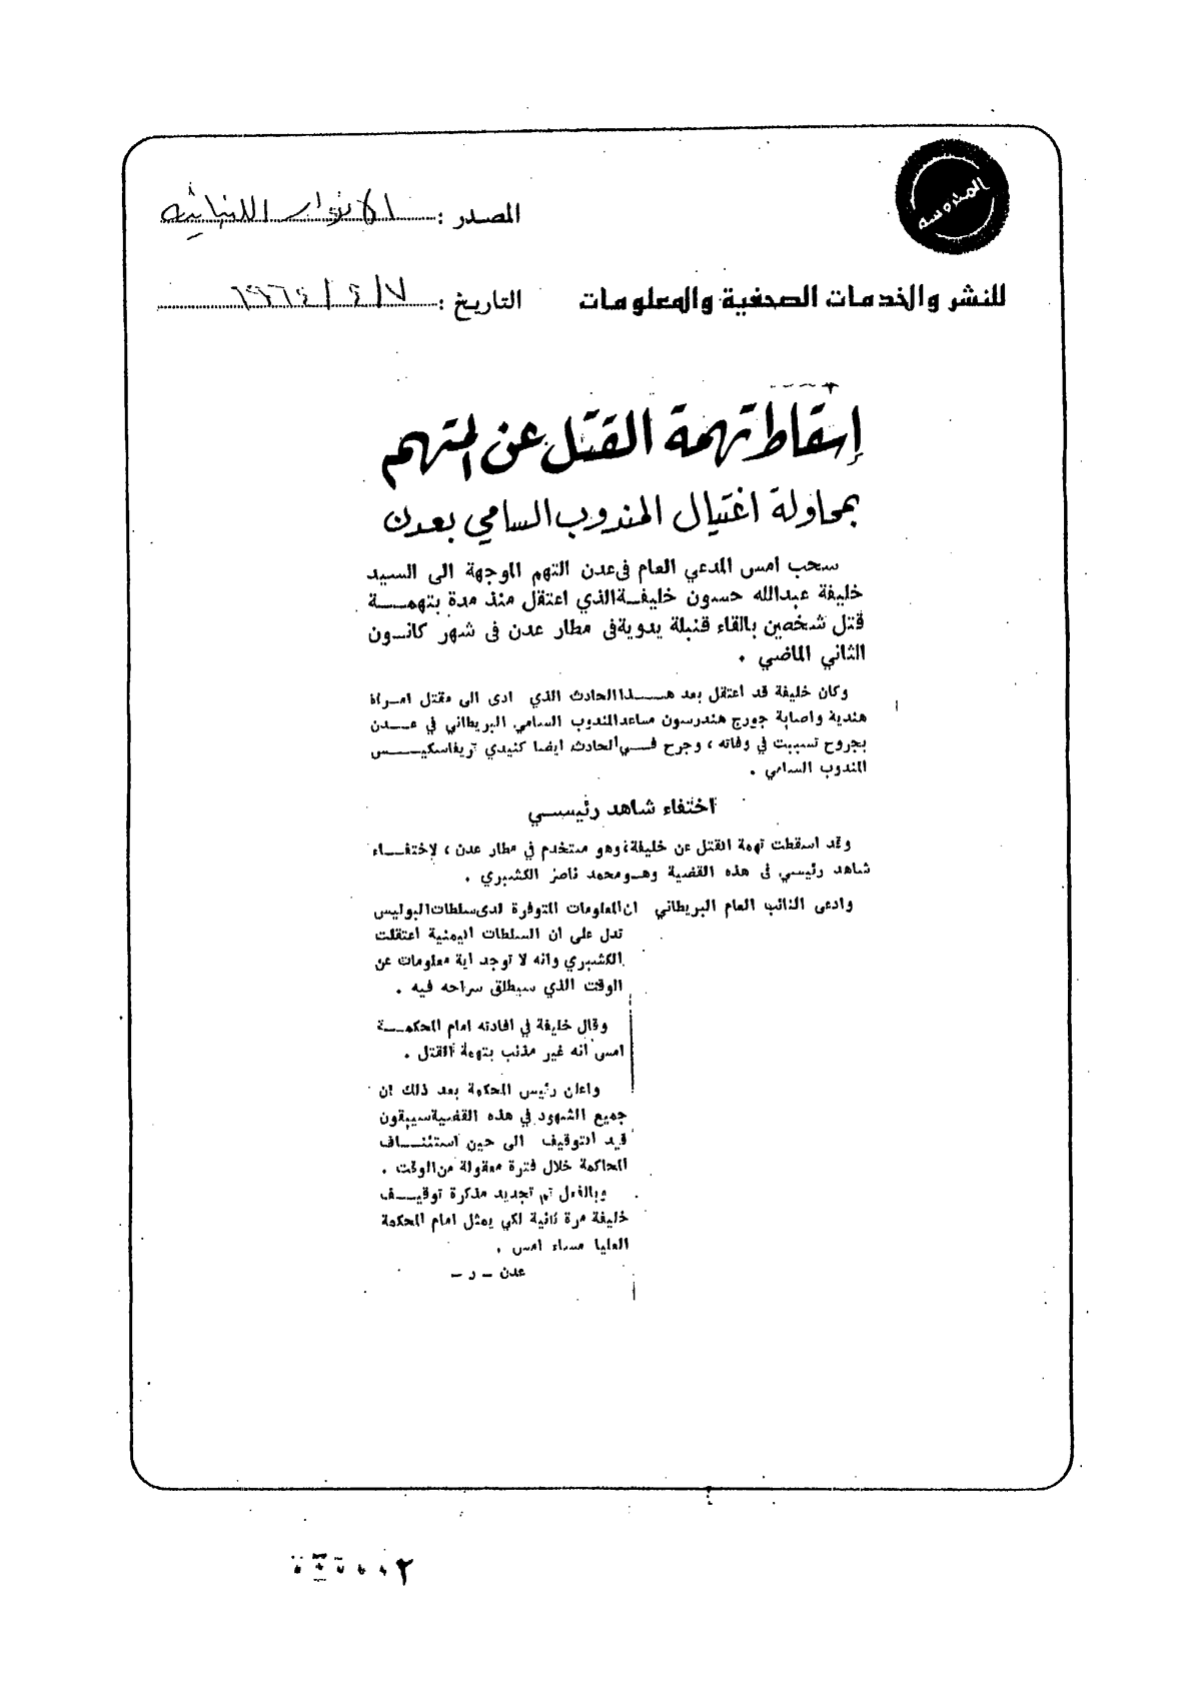 المحروسة
المصدر : الانوار اللبنانيه
للنشر والخدمات الصحفية والمعلومات
التاريخ : ٧ / ٤ / ١٩٦٤
إسقاط تهمة القتل عن المتهم
بمحاولة اغتيال المندوب السامي بعدن
سحب امس المدعي العام فى عدن التهم الموجهة الى السيد
خليفة عبدالله حسون خليفة الذي اعتقل منذ مدة بتهمة
قتل شخصين بالقاء قنبلة يدوية فى مطار عدن فى شهر كانون
الثاني الماضي .
وكان خليفة قد اعتقل بعد هذا الحادث الذي ادى الى مقتل امرأة
هندية واصابة جورج هندرسون مساعد المندوب السامي البريطاني في عدن
بجروح تسببت في وفاته ، وجرح في الحادث ايضا كنيدي تريفاسكيس
المندوب السامي .
اختفاء شاهد رئيسي
وقد اسقطت تهمة القتل عن خليفة ، وهو مستخدم في مطار عدن ، لإختفاء
شاهد رئيسي فى هذه القضية وهو محمد ناصر الكشبري .
وادعى النائب العام البريطاني ان المعلومات المتوفرة لدى سلطات البوليس
تدل على ان السلطات اليمنية اعتقلت
الكشبري وانه لا توجد اية معلومات عن
الوقت الذي سيطلق سراحه فيه .
وقال خليفة في افادته امام المحكمة
امس انه غير مذنب بتهمة القتل .
واعلن رئيس المحكمة بعد ذلك ان
جميع الشهود في هذه القضية سيبقون
قيد التوقيف الى حين استئناف
المحاكمة خلال فترة معقولة من الوقت .
وبالفعل تم تجديد مذكرة توقيف
خليفة مرة ثانية لكي يمثل امام المحكمة
العليا مساء امس .
عدن - ر -